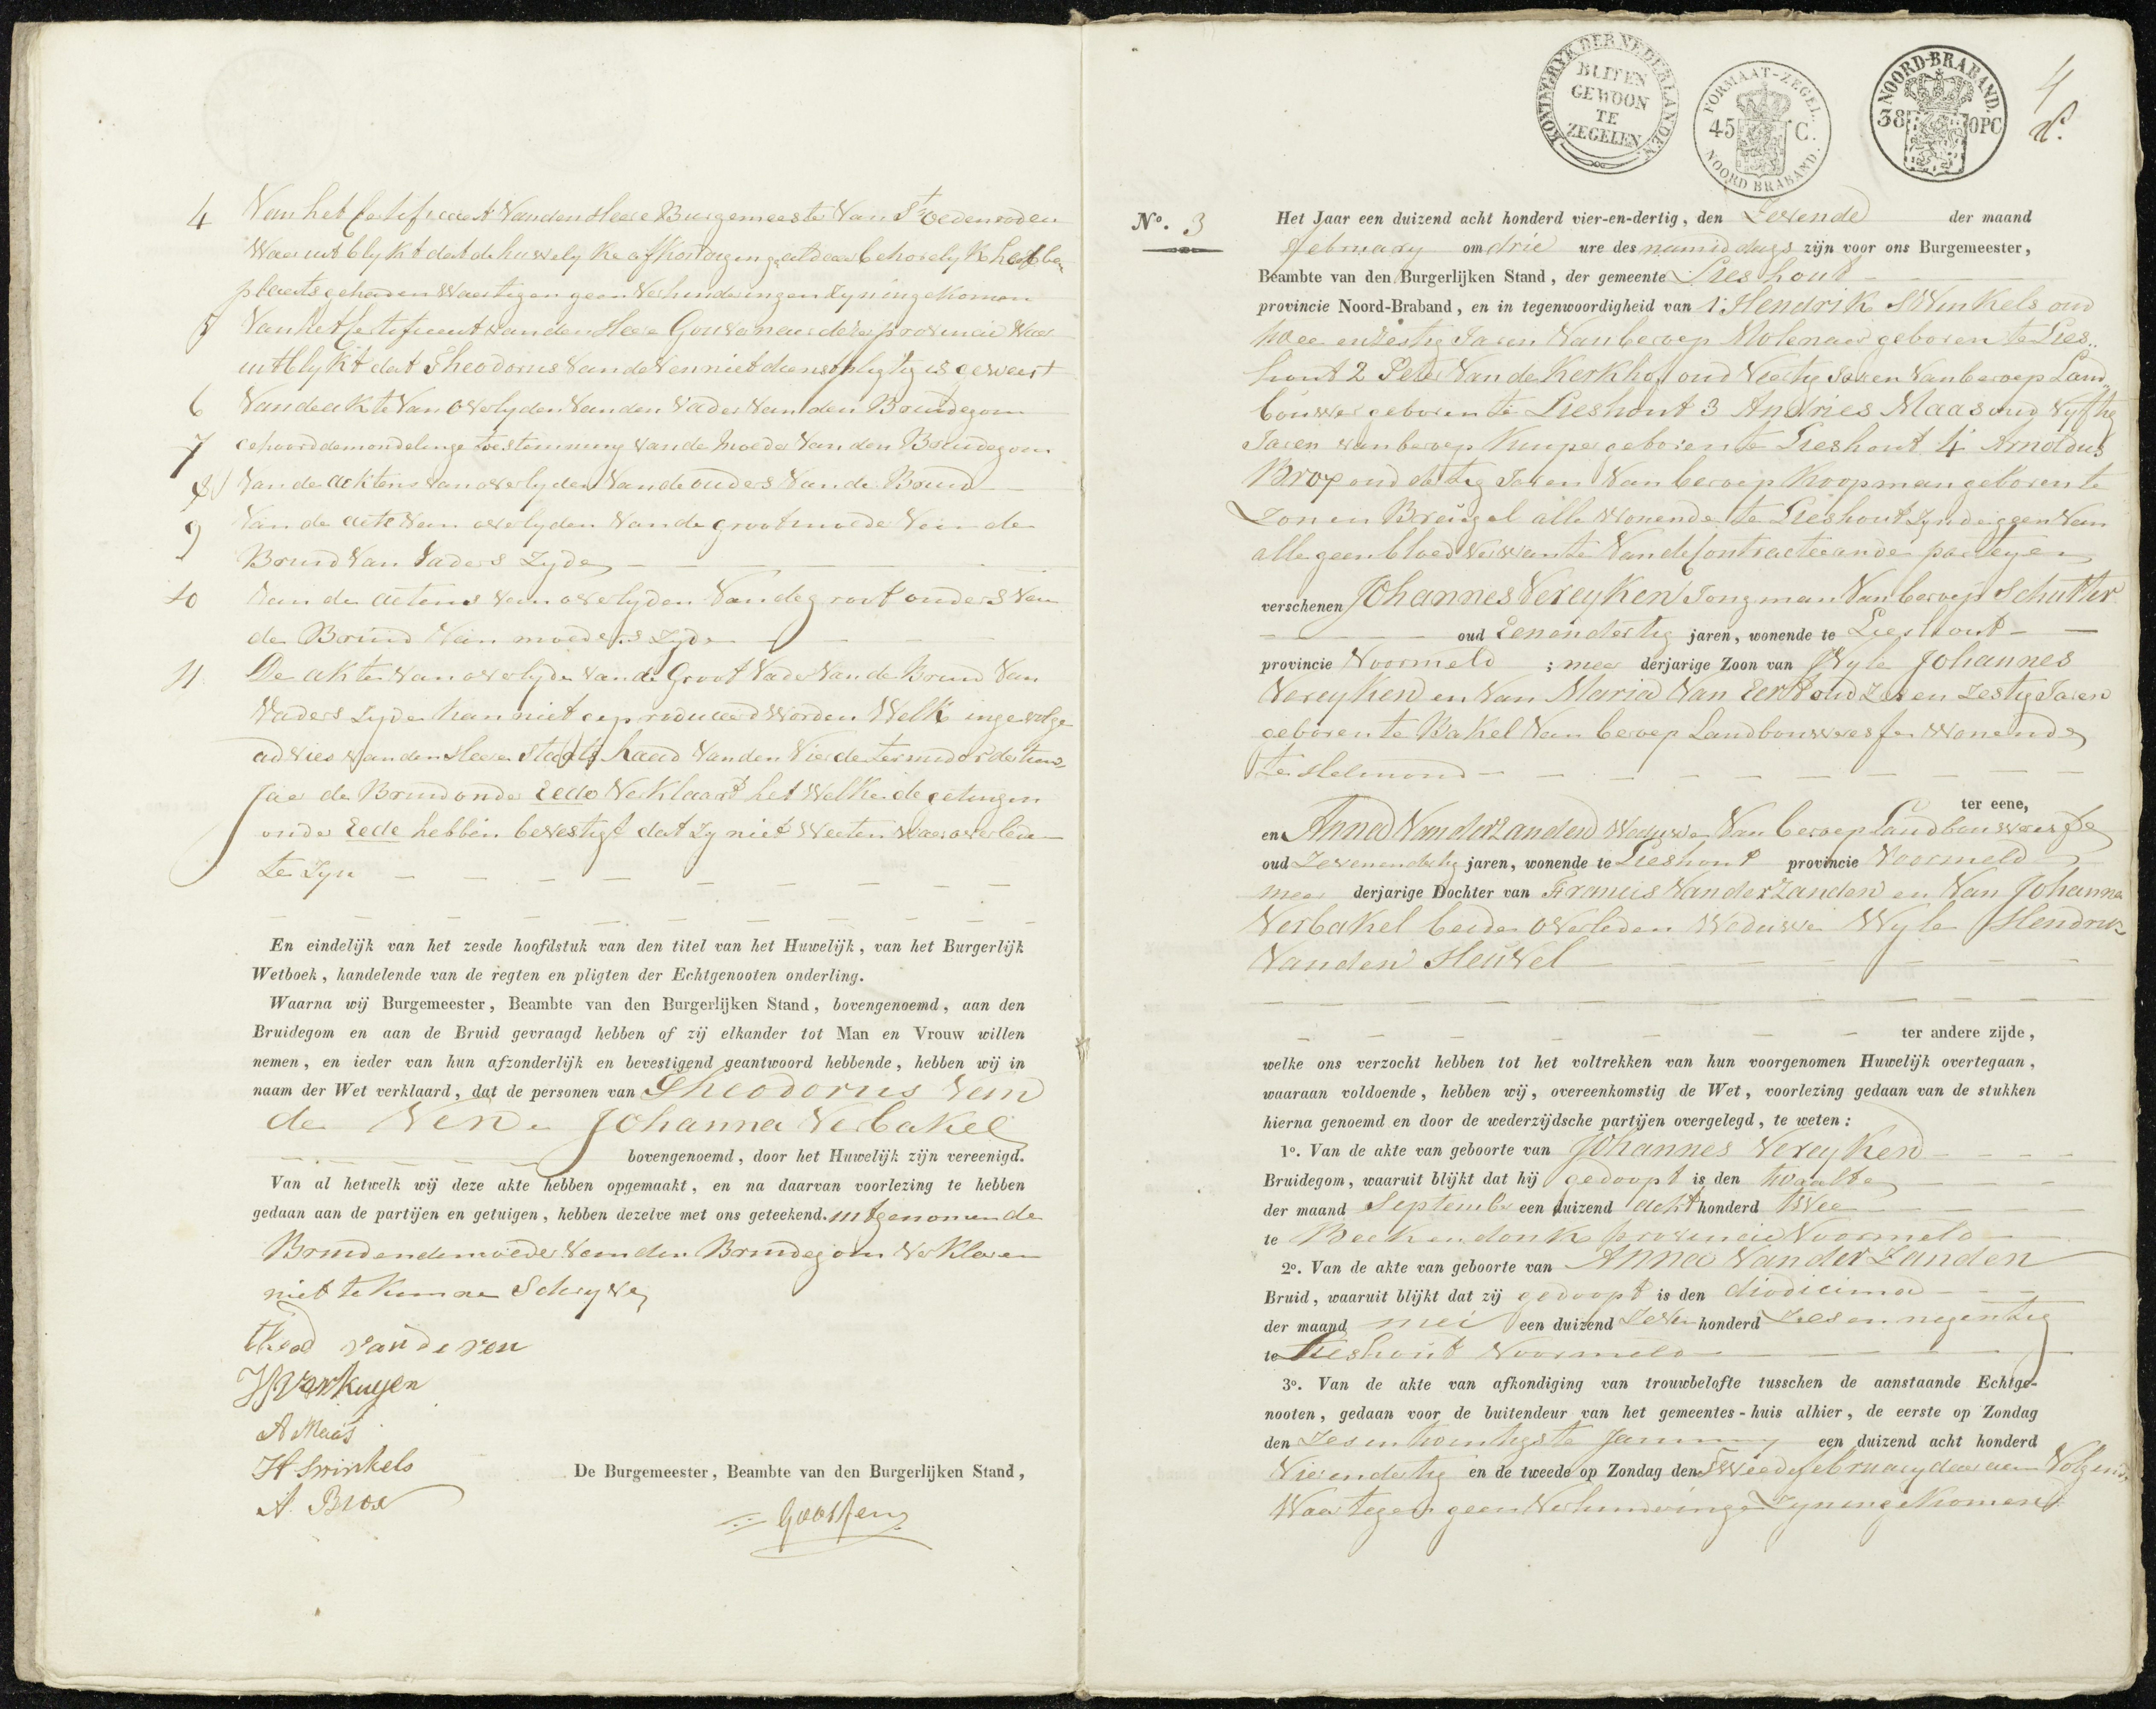 4 Van het Certificaat van den Heere Burgemeester van St oedenroden
waar uit blykt dat de huwelyke afkondiging aldaar behoorlyk heeft
plaats gehad en waartegen geen verhinderingen zyn ingekomen
5 Van het Certificaat van den Heere Gouverneur dezer provincie waar
uit blykt dat Theodorus van de Ven niet dienstpligtig is geweest
6 Van de akte van overlyden van den vader van den Bruidegom
7 gehoord de mondelinge toestemming van de moeder van den Bruidegom
8 Van de acktens van overlyden van de ouders van de Bruid
9 Van de acte van overlyden van de grootmoeder van de
Bruid van vaders zyde
10 Van de actens van overlyden van de groot ouders van
de Bruid van moeders zyde
11 De akte van overlyden van de Groot vader van de Bruid van
vaders zyde kan niet geproduceerd worden welke ingevolge
advies van den Heere Staats Raad van den vierde termidor dertien
Jaar de Bruid onder Eede verklaard het welke de getuigen
onder Eede hebben bevestigt dat zy niet weeten waar overleden
te zyn
En eindelijk van het zesde hoofdstuk van den titel van het Huwelijk, van het Burgerlijk
Wetboek, handelende van de regten en pligten der Echtgenooten onderling.
Waarna wij Burgemeester, Beambte van den Burgerlijken Stand, bovengenoemd, aan den
Bruidegom en aan de Bruid gevraagd hebben of zij elkander tot Man en Vrouw willen
nemen, en ieder van hun afzonderlijk en bevestigend geantwoord hebbende, hebben wij in
naam der Wet verklaard, dat de personen van Theodorus van
de Ven en Johanna Verbakel
bovengenoemd, door het Huwelijk zijn vereenigd.
Van al hetwelk wij deze akte hebben opgemaakt, en na daarvan voorlezing te hebben
gedaan aan de partijen en getuigen, hebben dezelve met ons geteekend. uitgenomen de
Bruid en de moeder van den Bruidegom verklaren
niet te kunnen Schryve
theod van de ven
A Maas
H Swinkels
A. Brox
De Burgemeester, Beambte van den Burgerlijken Stand,
Goossens
KONINGRYK DER NEDERLANDEN.
BUITEN
GEWOON
TE
ZEGELEN
FORMAAT-ZEGEL.
45 C.
NOORD BRABAND.
NOORD-BRABAND.
38 OPC
4
No. 3
Het Jaar een duizend acht honderd vier-en-dertig, den Zevende der maand
February om drie ure des namiddags zijn voor ons Burgemeester,
Beambte van den Burgerlijken Stand, der gemeente Lieshout
provincie Noord-Braband, en in tegenwoordigheid van 1 Hendrik Swinkels oud
twee enzestig Jaren van beroep Molenaar geboren te Lies„
hout 2 Peter van de Kerkhof oud Veertig Jaren van beroep Land„
bouwer geboren te Lieshout 3 Andries Maas oud Vyftig
Jaren van beroep Kuiper geboren te Lieshout 4 Arnoldus
Brox oud dertig Jaren van beroep Koopman geboren te
Zon en Breugel alle wonende te Lieshout zynde geen van
alle geen bloedverwante van de Contracteerande parteyen
verschenen Johannes Vereyken Jongman van beroep Schutter
oud Eenendertig jaren, wonende te Lieshout
provincie Voormeld ; meer derjarige Zoon van Wyle Johannes
Vereyken en van Maria van Eert oud zes en zestig Jaren
geboren te Bakel van beroep Landbouweresse wonende
te Helmond
ter eene,
en Anna van der Zanden Weduwe van beroep Landbouweresse
oud Zevenendertig jaren, wonende te Lieshout provincie Voormeld
meer derjarige Dochter van Francis van der Zanden en van Johanna
Verbakel beiden overleden Weduwe Wyle Hendrik
van den Heuvel
ter andere zijde,
welke ons verzocht hebben tot het voltrekken van hun voorgenomen Huwelijk overtegaan,
waaraan voldoende, hebben wij, overeenkomstig de Wet, voorlezing gedaan van de stukken
hierna genoemd en door de wederzijdsche partijen overgelegd, te weten:
1o. Van de akte van geboorte van Johannes Vereyken
Bruidegom, waaruit blijkt dat hij gedoopt is den twaalfde
der maand September een duizend acht honderd twee
te Beek en donk provincie Voormeld
2o. Van de akte van geboorte van Anna van der Zanden
Bruid, waaruit blijkt dat zij gedoopt is den diodicima
der maand mei een duizend Zeven honderd Zes en negentig
te Lieshout Voormeld
3o. Van de akte van afkondiging van trouwbelofte tusschen de aanstaande Echtge-
nooten, gedaan voor de buitendeur van het gemeentes-huis alhier, de eerste op Zondag
den Zes en twentigste January een duizend acht honderd
Vierendertig en de tweede op Zondag den Tweede february daar aan Volgend
Waar tegen geen Verhinderinge Zyn ingekomen